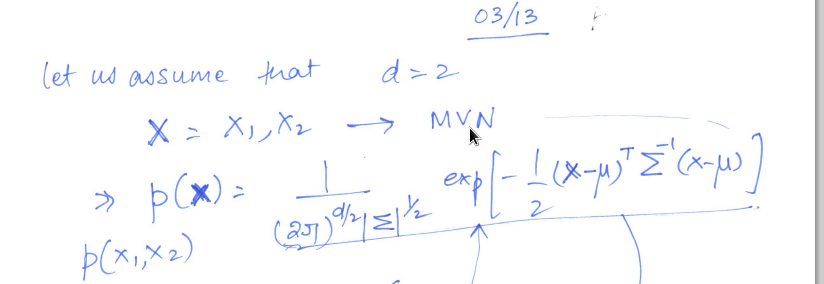 03/13
let us assume that d = 2
X = X1, X2 → MVN
⇒ p(x) = 1 / (2π)^{d/2} |Σ|^{1/2} exp[-1/2 (x-μ)^T Σ^{-1} (x-μ)]
p(x1, x2)